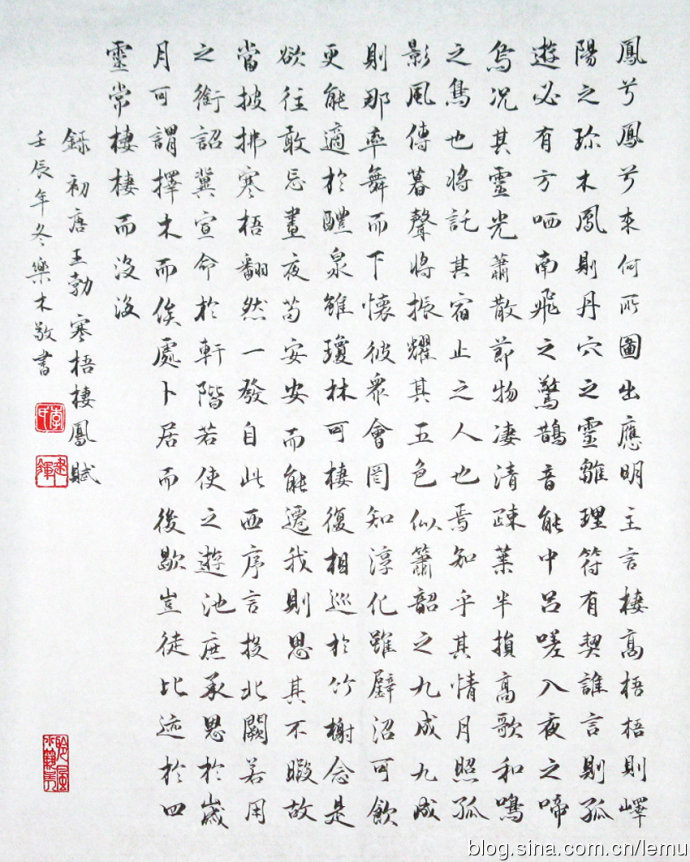 鳳兮鳳兮來何所圖出應明主言棲高梧梧則嶧
陽之珎木鳳則丹穴之靈雛理符有契誰言則孤
遊必有方哂南飛之驚鵲音能中呂嗟入夜之啼
烏況其靈光蕭散節物凄清疎葉半損高歌和鳴
之鳥也將託其宿止之人也焉知乎其情月照孤
影風傳暮聲將振耀其五色似簫韶之九成九成
則那率舞而下懷彼眾會罔知淳化雖璧沼可飲
更能適於醴泉雖瓊林可棲復相巡於竹榭念是
欲往敢忘晝夜苟安安而能遷我則思其不暇故
當披拂寒梧翻然一發自此西序言投北闕若用
之銜詔冀宣命於軒階若使之遊池庶承恩於歲
月可謂擇木而俟處卜居而後歇豈徒比迹於四
靈常棲棲而沒沒
錄初唐王勃寒梧棲鳳賦
壬辰年冬樂木敬書
blog.sina.com.cn/lemu